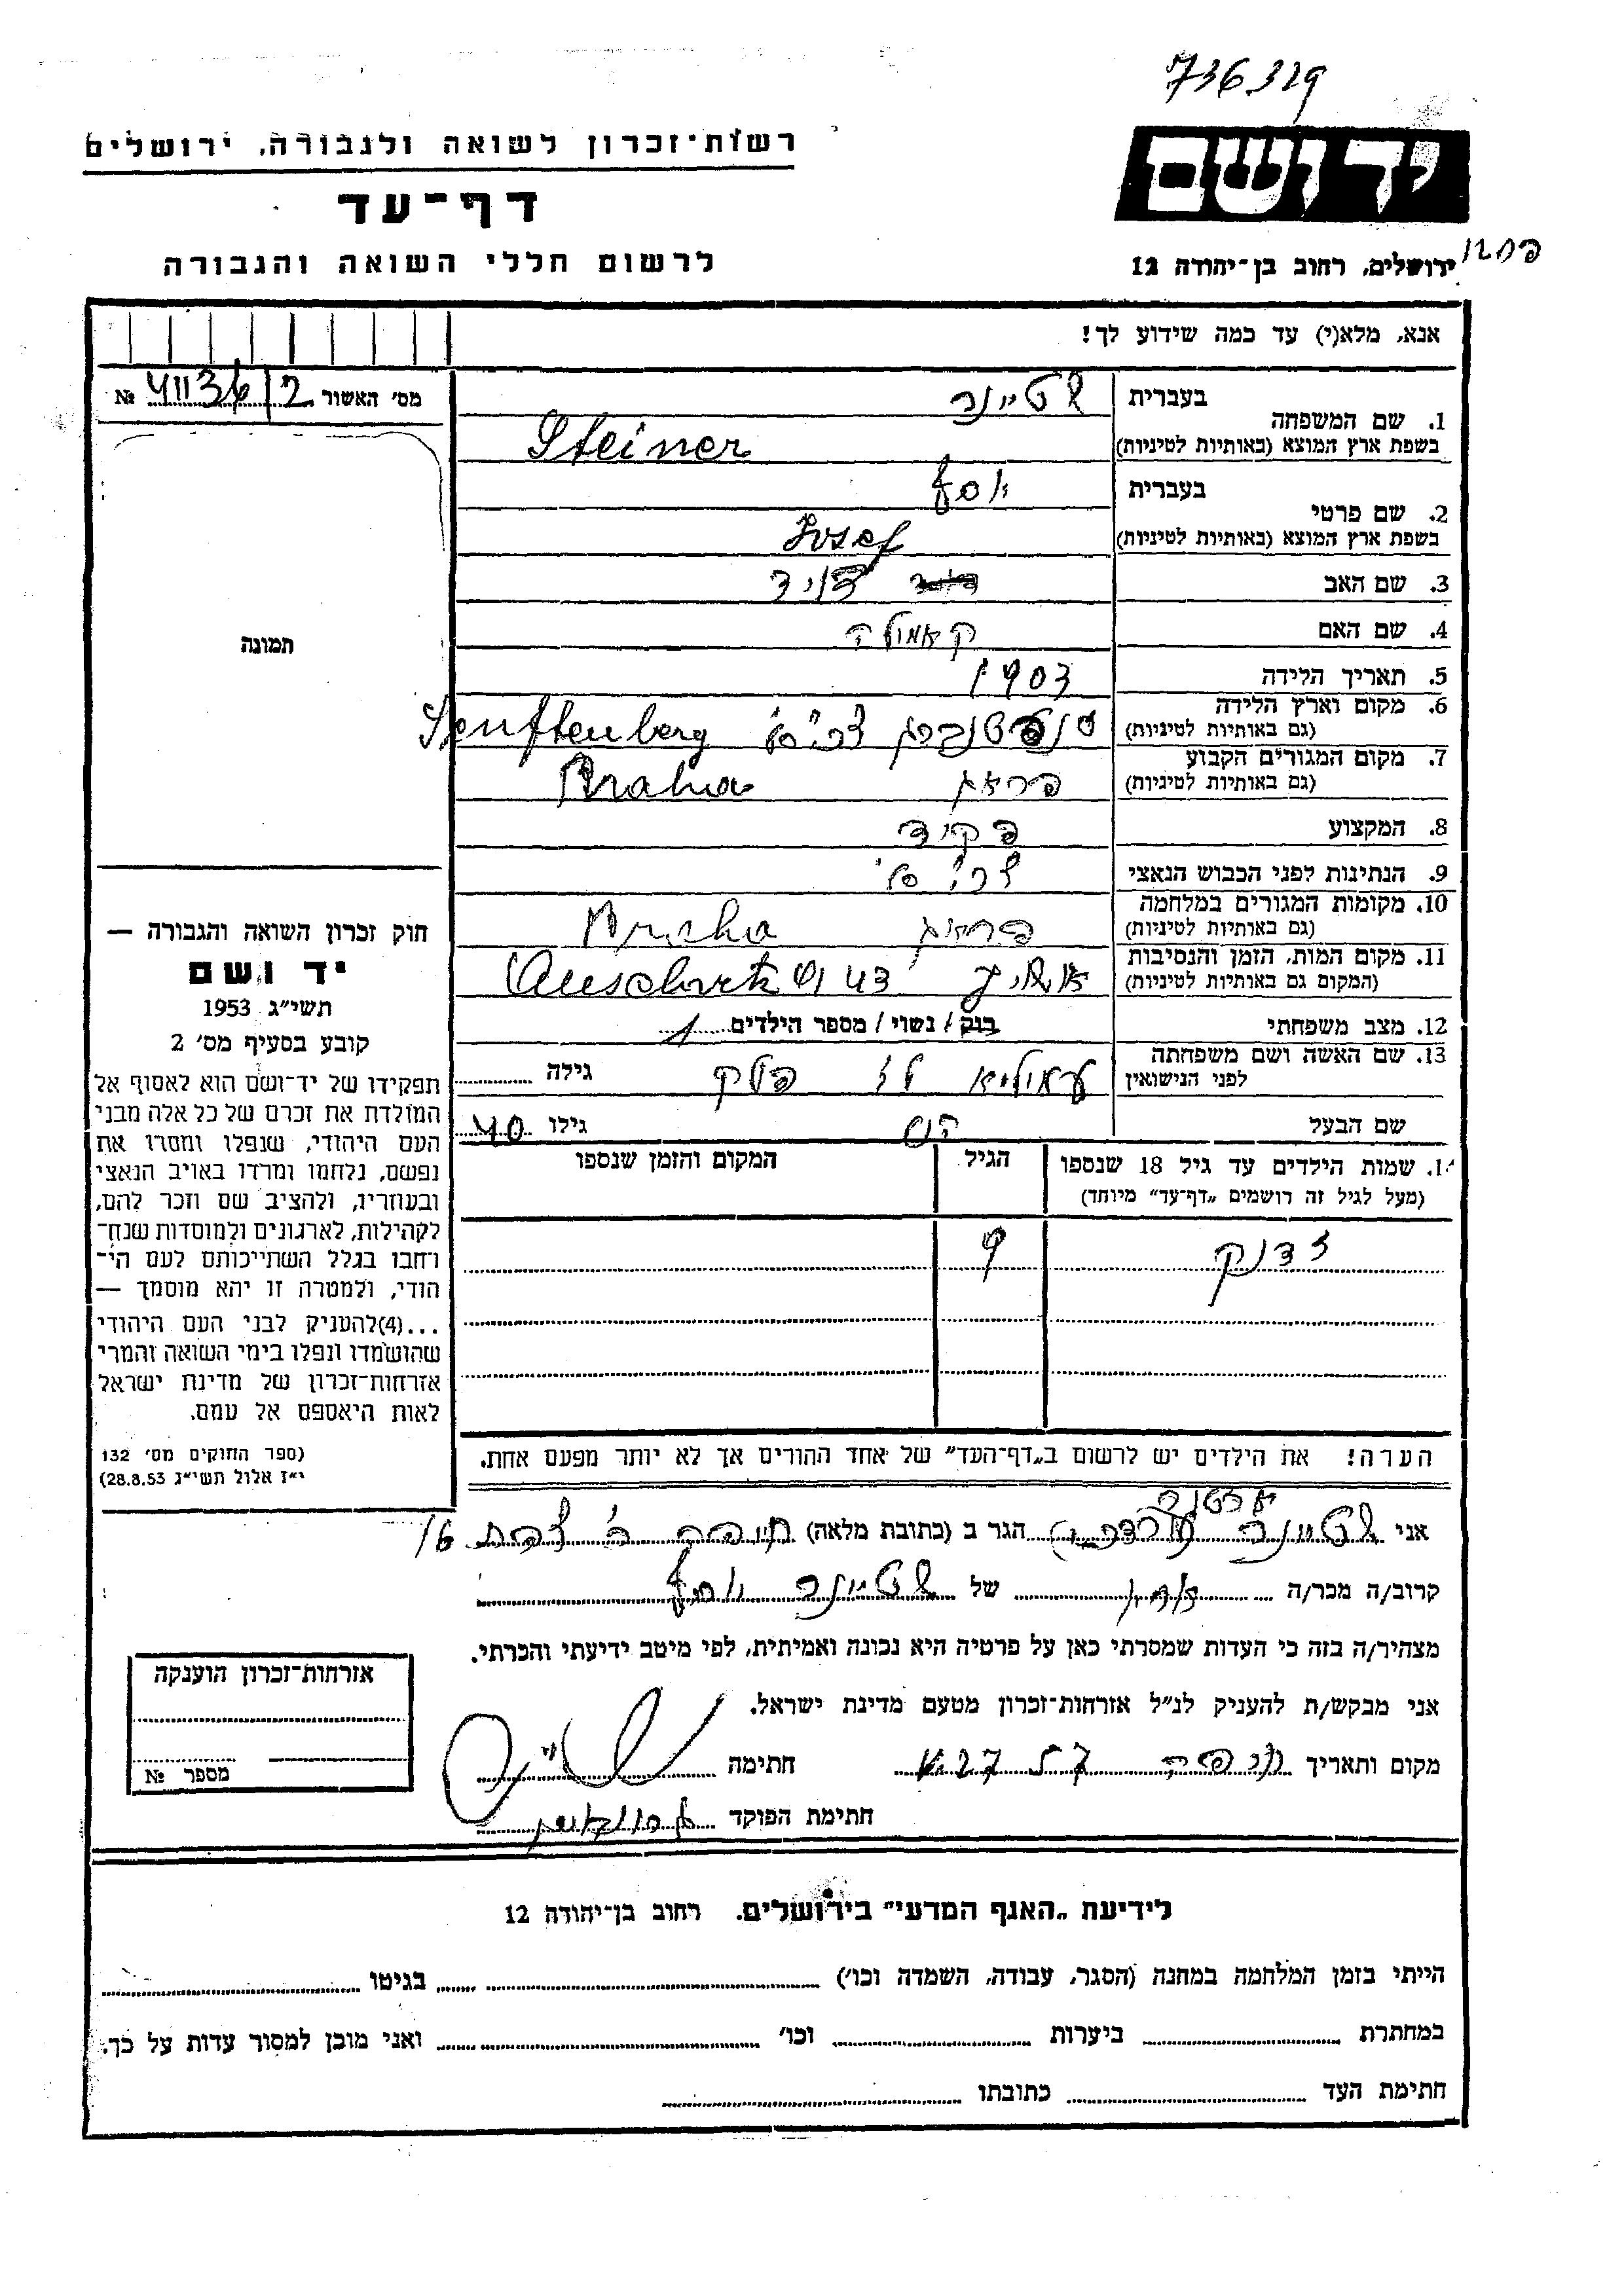 736329
רשות-זכרון לשואה ולגבורה, ירושלים
יד ושם
דף-עד
לרשום חללי השואה והגבורה
ירושלים, רחוב בן-יהודה 12
אנא, מלא(י) עד כמה שידוע לך!
מס' האשור 41136/2 №
בעברית שטיינר
1. שם המשפחה
בשפת ארץ המוצא (באותיות לטיניות) Steiner
בעברית יוסף
2. שם פרטי
בשפת ארץ המוצא (באותיות לטיניות) Josef
3. שם האב דויד
4. שם האם
5. תאריך הלידה 1903
6. מקום וארץ הלידה
(גם באותיות לטיניות) סנפטנברג צ'כיס' Senftenberg
7. מקום המגורים הקבוע
(גם באותיות לטיניות) פראג Praha
8. המקצוע פקיד
9. הנתינות לפני הכבוש הנאצי
10. מקומות המגורים במלחמה
(גם באותיות לטיניות) פראג Praha
11. מקום המות, הזמן והנסיבות
(המקום גם באותיות לטיניות)
12. מצב משפחתי רווק / נשוי / מספר הילדים 1
13. שם האשה ושם משפחתה
לפני הנישואין
גילה
שם הבעל גילו 40
14. שמות הילדים עד גיל 18 שנספו
(מעל לגיל זה רושמים „דף-עד" מיוחד)
הגיל
המקום והזמן שנספו
זדנק 9
הערה! את הילדים יש לרשום ב„דף-העד" של אחד ההורים אך לא יותר מפעם אחת.
תמונה
חוק זכרון השואה והגבורה —
יד ושם
תשי"ג 1953
קובע בסעיף מס' 2
תפקידו של יד-ושם הוא לאסוף אל
המולדת את זכרם של כל אלה מבני
העם היהודי, שנפלו ומסרו את
נפשם, נלחמו ומרדו באויב הנאצי
ובעוזריו, ולהציב שם וזכר להם,
לקהילות, לארגונים ולמוסדות שנח-
רחבו בגלל השתייכותם לעם הי-
הודי, ולמטרה זו יהא מוסמך —
...(4)להעניק לבני העם היהודי
שהושמדו ונפלו בימי השואה והמרי
אזרחות-זכרון של מדינת ישראל
לאות היאספם אל עמם.
(ספר החוקים מס' 132
י"ז אלול תשי"ג 28.8.53)
אני שטיינר הגר ב (כתובת מלאה) חיפה 16
קרוב/ה מכר/ה של שטיינר יוסף
מצהיר/ה בזה כי העדות שמסרתי כאן על פרטיה היא נכונה ואמיתית, לפי מיטב ידיעתי והכרתי.
אני מבקש/ת להעניק לנ"ל אזרחות-זכרון מטעם מדינת ישראל.
מקום ותאריך חיפה חתימה
חתימת הפוקד
אזרחות-זכרון הוענקה
מספר №
לידיעת „האגף המדעי" בירושלים. רחוב בן-יהודה 12
הייתי בזמן המלחמה במחנה (הסגר, עבודה, השמדה וכו') בגיטו
במחתרת ביערות וכו' ואני מוכן למסור עדות על כך.
חתימת העד כתובתו